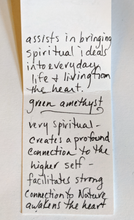 assists in bringing
spiritual ideals
into everyday
life & living from
the heart.
green amethyst
very spiritual -
creates a profound
connection to the
higher self -
facilitates strong
connection to Nature
awakens the heart